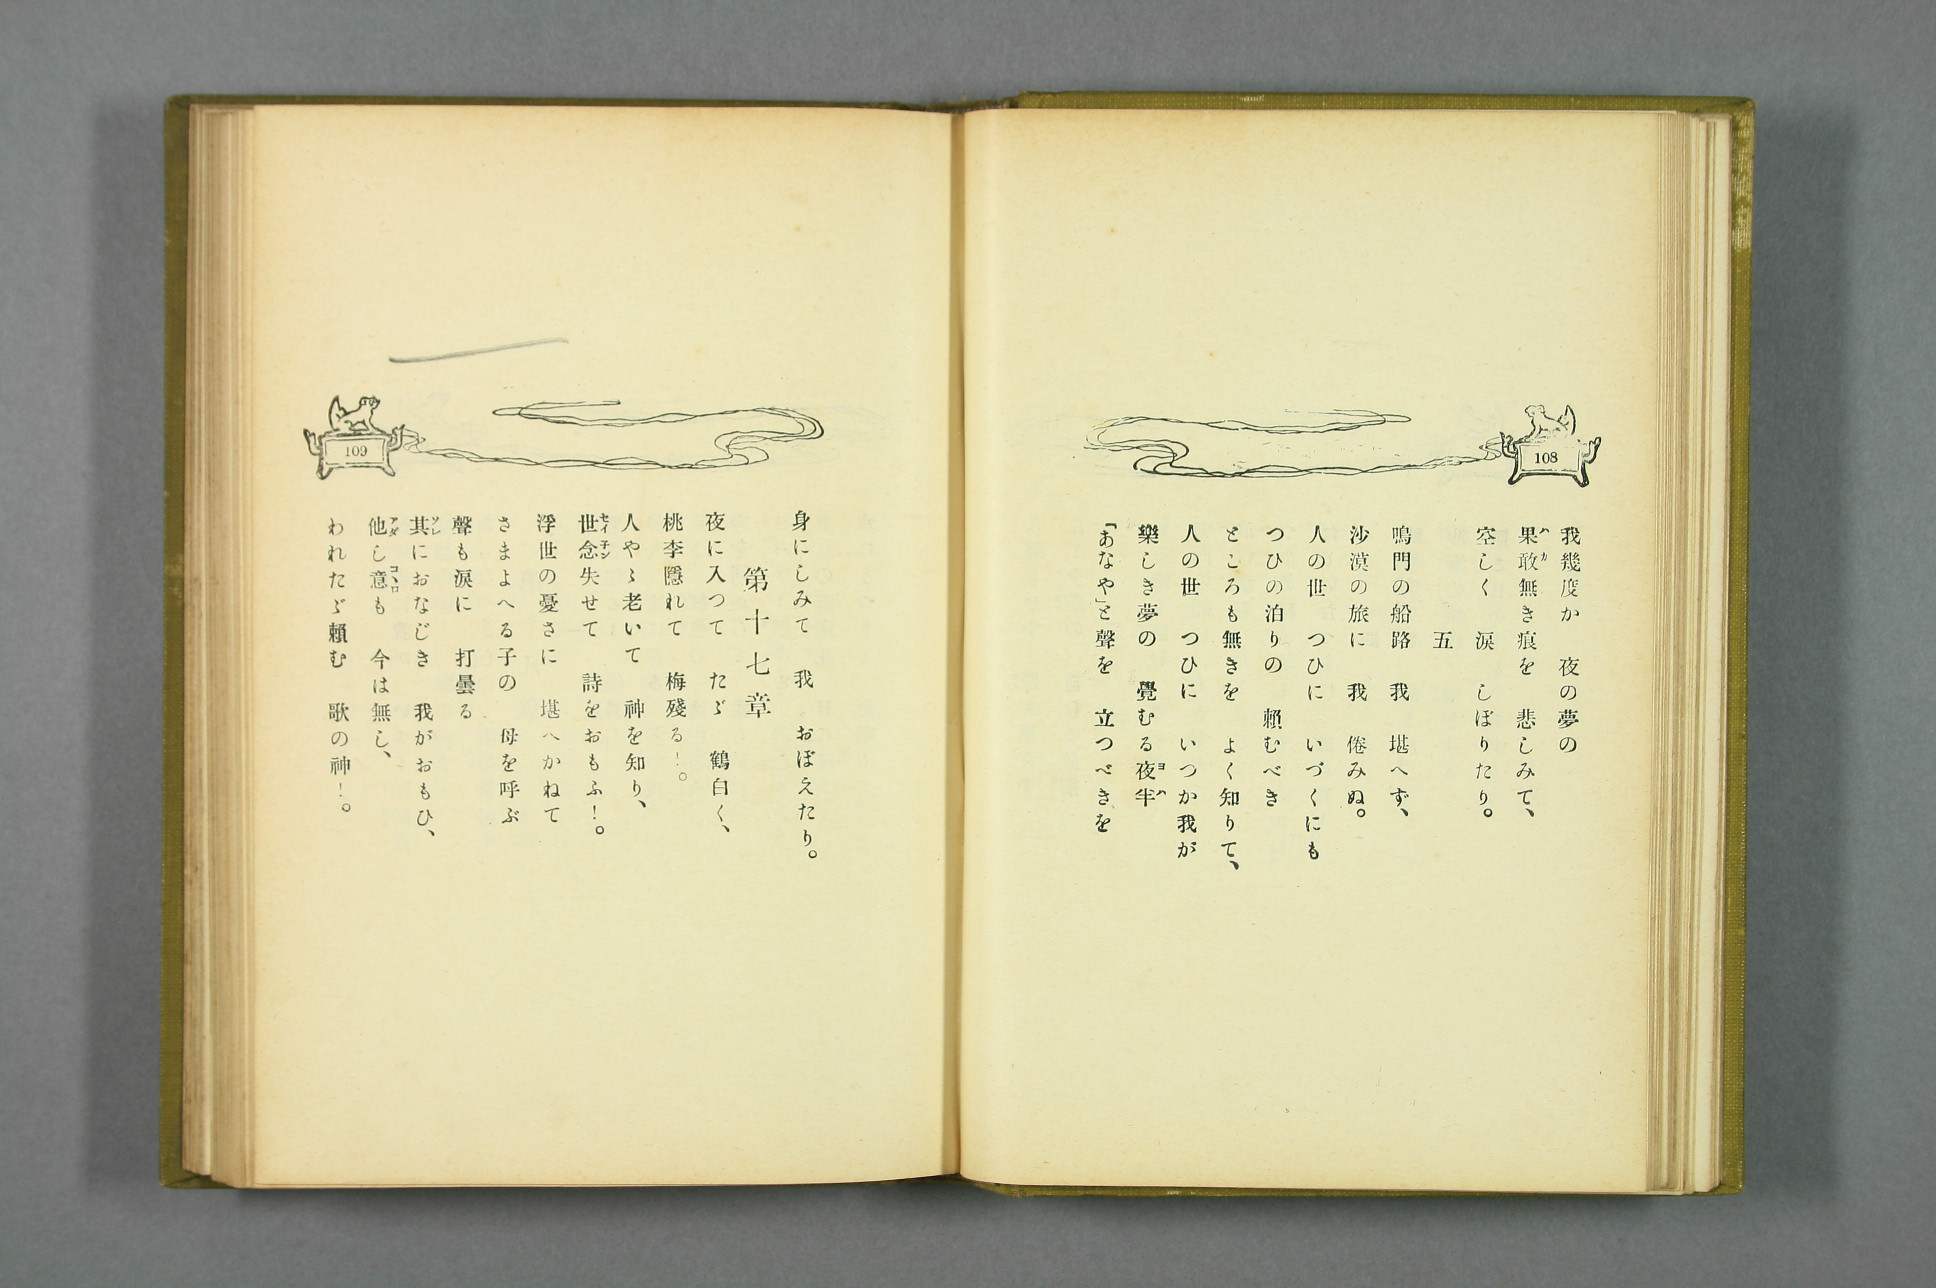 108
我幾度か　夜の夢の
果敢無き痕を　悲しみて、
空しく　涙　しぼりたり。
五
鳴門の船路　我　堪へず、
沙漠の旅に　我　倦みぬ。
人の世　つひに　いづくにも
つひの泊りの　頼むべき
ところも無きを　よく知りて、
人の世　つひに　いつか我が
樂しき夢の　覺むる夜半
「あなや」と聲を　立つべきを
109
身にしみて　我　おぼえたり。
第十七章
夜に入つて　たゞ　鶴白く、
桃李隱れて　梅殘る！。
人やゝ老いて　神を知り、
世念失せて　詩をおもふ！。
浮世の憂さに　堪へかねて
さまよへる子の　母を呼ぶ
聲も涙に　打曇る
其におなじき　我がおもひ、
他し意も　今は無し、
われたゞ頼む　歌の神！。